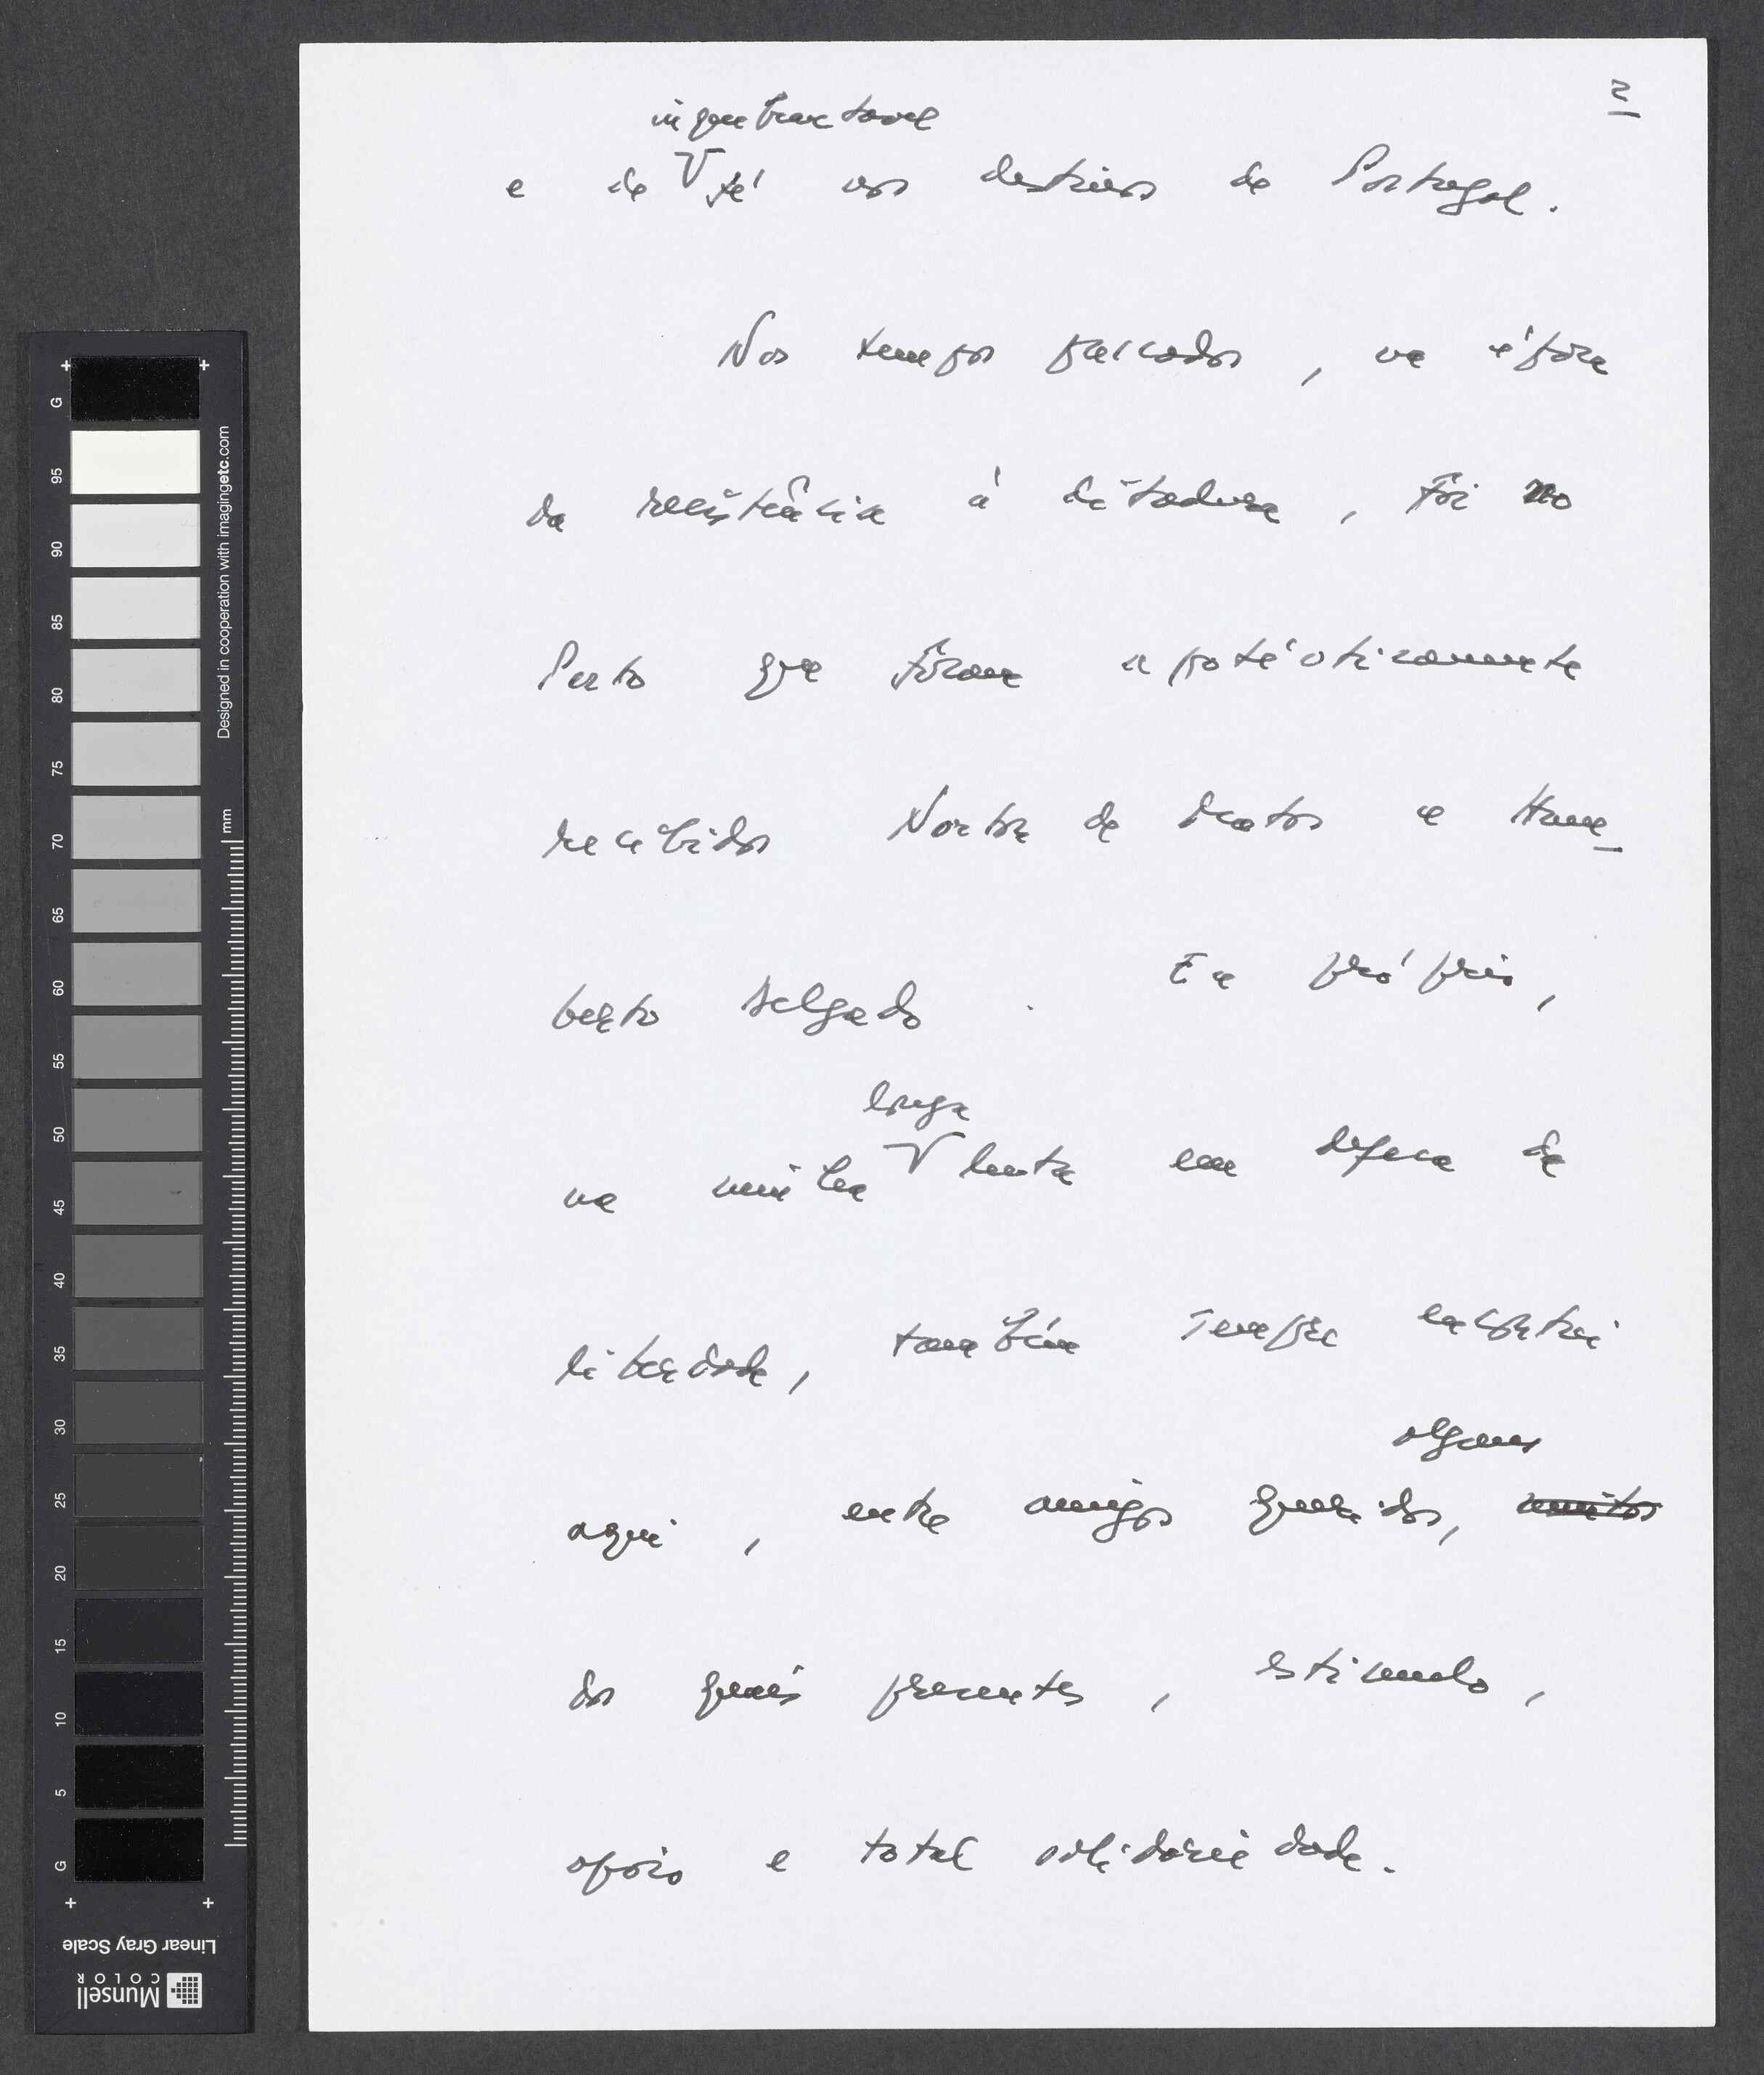 2
inquebrantável
e de V fé nos destinos de Portugal.
Nos tempos passados, na época
da resistência à ditadura, foi no
Porto que foram apoteóticamente
recebidos Norton de Matos e Hum
berto Delgado. Eu próprio,
longa
na minha V luta em defesa da
liberdade, também sempre encontrei
alguns
aqui, entre amigos queridos, muitos
dos quais presentes, estímulo,
apoio e total solidariedade.
G
95
90
85
80
75
70
65
60
55
50
45
40
35
30
25
20
15
10
5
G
Designed in cooperation with imagingetc.com
mm
Linear Gray Scale
Munsell
COLOR